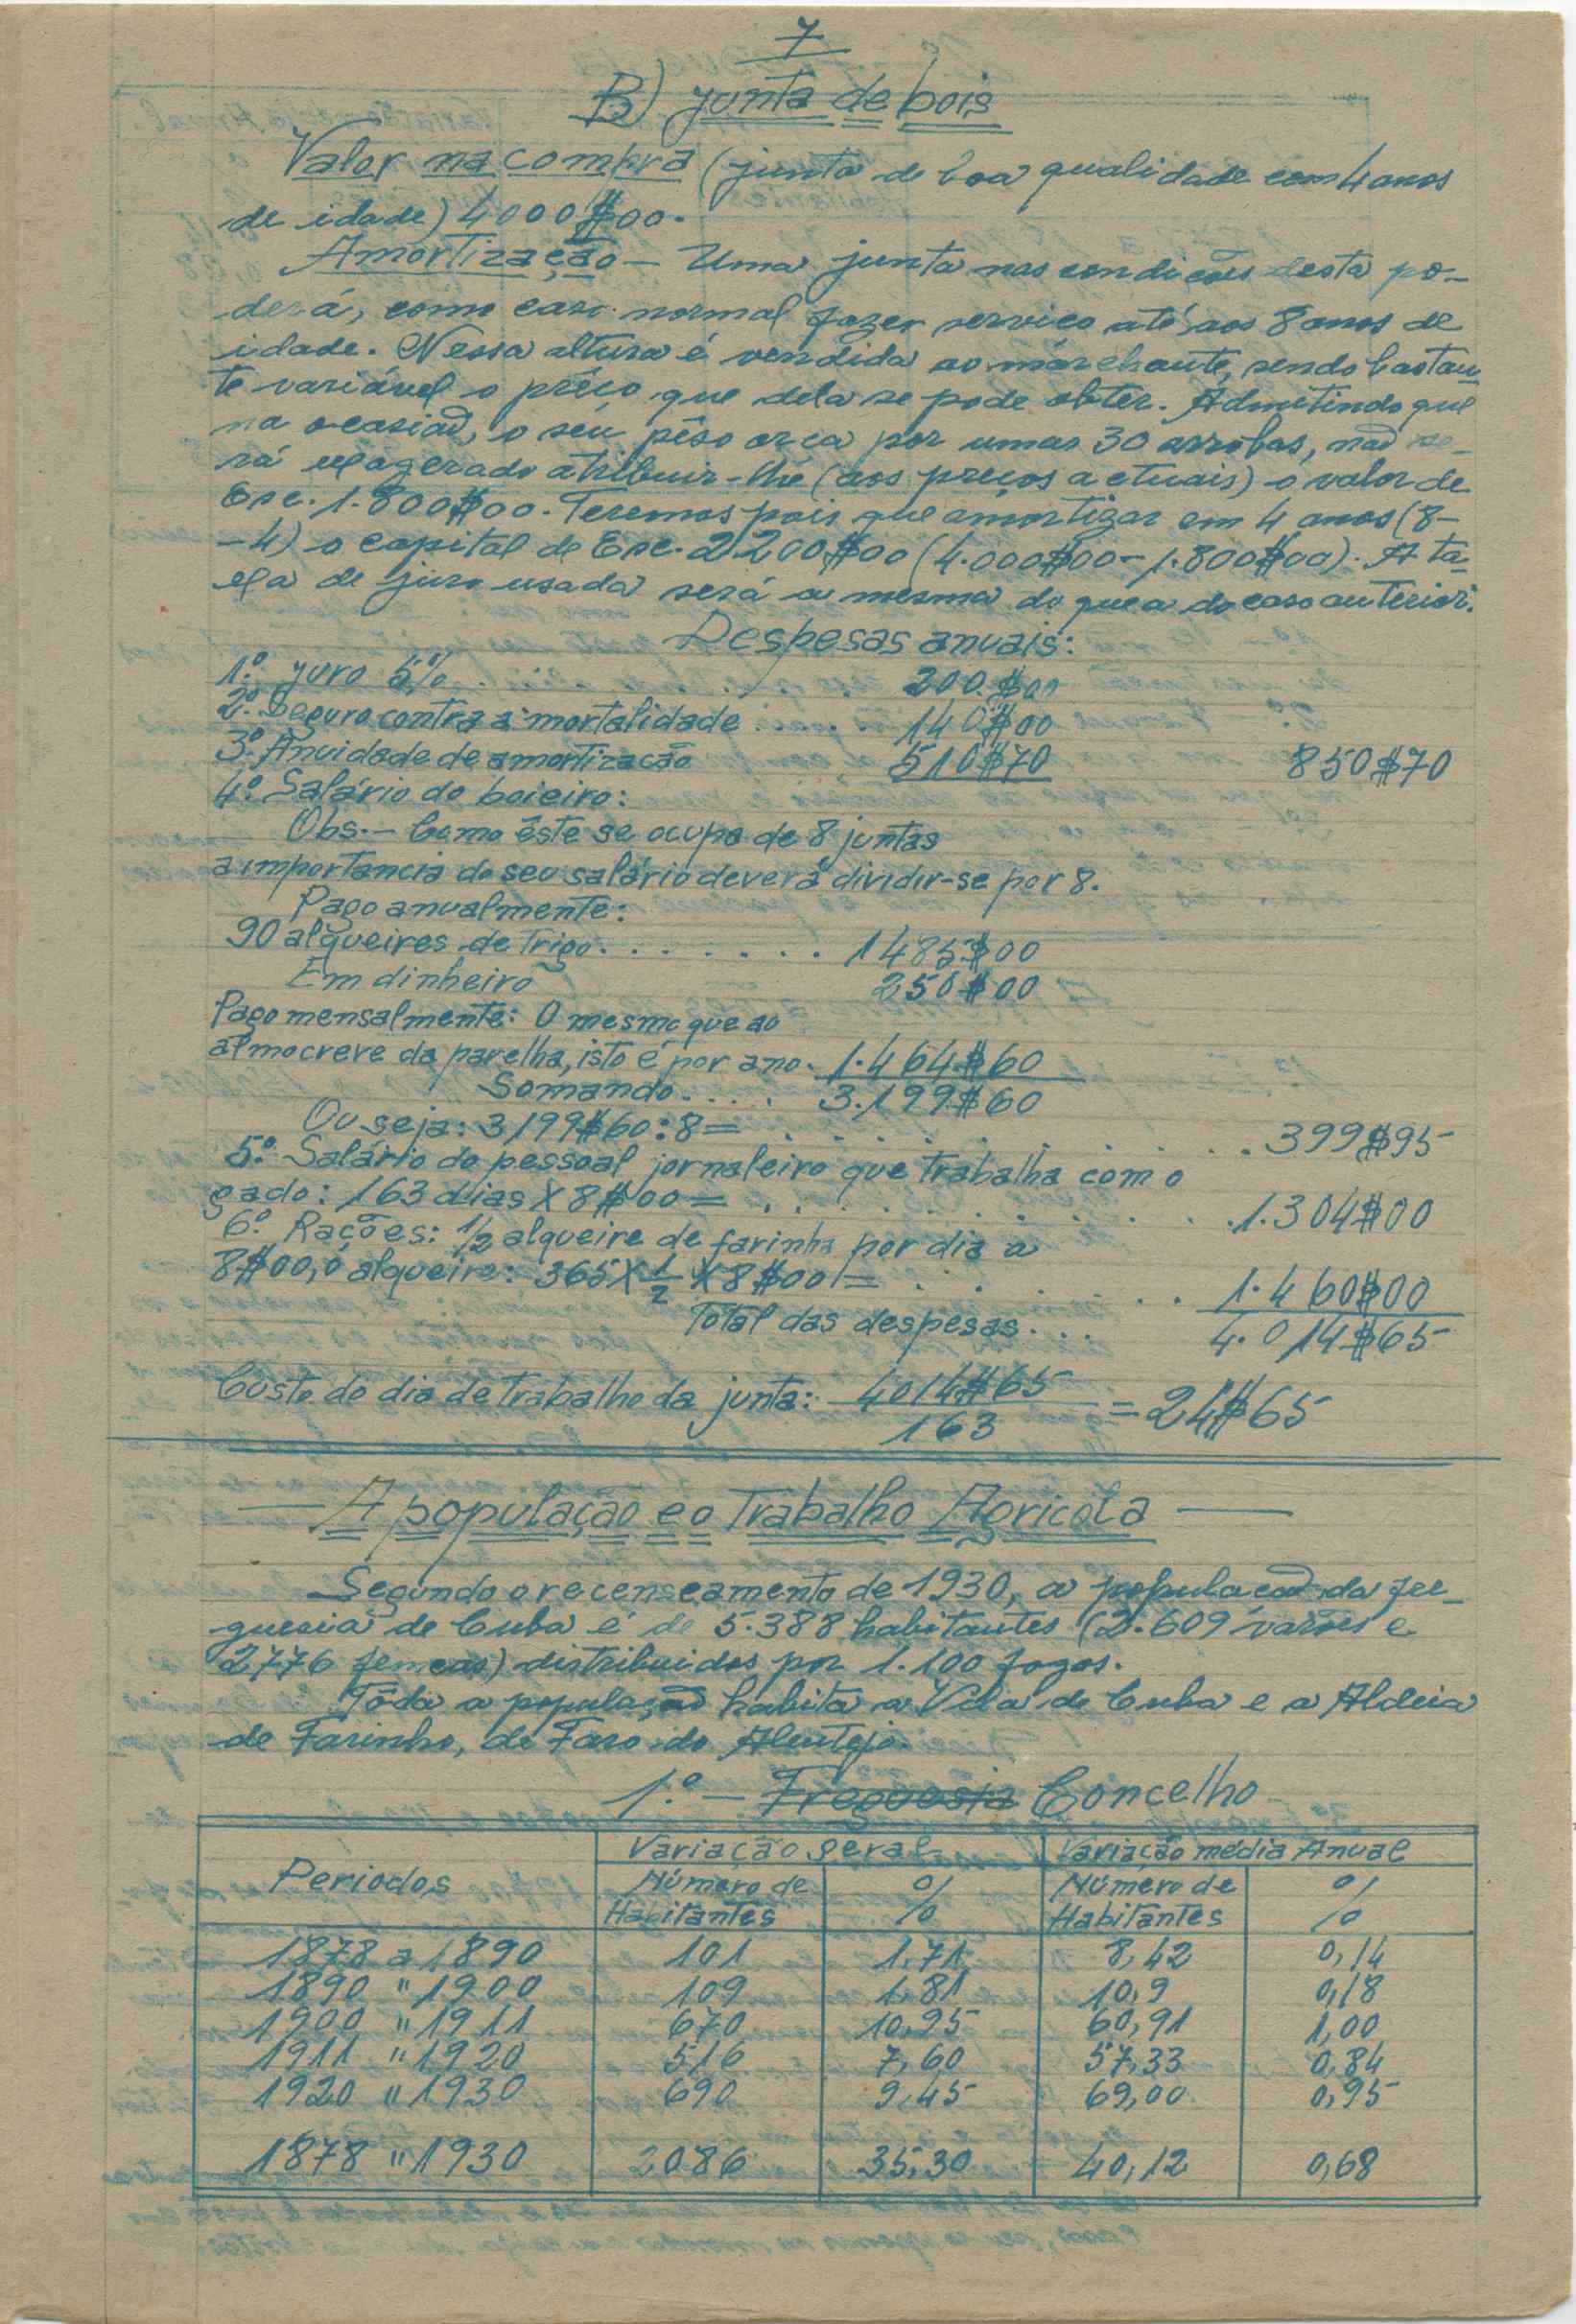 7
B) Junta de bois
Valor na compra (junta de boa qualidade com 4 anos
de idade) 4000$00.
Amortização — Uma junta nas condições desta po-
derá, como caso normal fazer serviço até aos 8 anos de
idade. Nessa altura é vendida ao marchante, sendo bastan-
te variável o preço que dela se pode obter. Admitindo que
na ocasião, o seu pêso orça por umas 30 arrobas, não se-
rá exagerado atribuir-lhe (aos preços actuais) o valor de
Esc. 1.800$00. Teremos pois que amortizar em 4 anos (8-
-4) o capital de Esc. 2200$00 (4.000$00 - 1.800$00). A ta-
xa de juro usada será a mesma do que a do caso anterior.
Despesas anuais:
1.º Juro 5% . 200.$00
2.º Seguro contra a mortalidade . . . . 140$00
3.º Anuidade de amortização 510$70 850$70
4.º Salário do boieiro:
Obs. — Como êste se ocupa de 8 juntas
a importancia do seu salário deverá dividir-se por 8.
Pago anualmente:
90 alqueires de trigo . . . . . . . 1485$00
Em dinheiro 250$00
Pago mensalmente: O mesmo que ao
almocreve da parelha, isto é por ano. 1.464$60
Somando . . . . 3.199$60
Ou seja: 3199$60:8= . . . . . . . . . . . 399$95
5.º Salário do pessoal jornaleiro que trabalha com o
gado: 163 dias X 8$00 = . . . . . . . . . . . 1.304$00
6.º Rações: 1/2 alqueire de farinha por dia a
8$00, o alqueire: 365 X 1/2 X 8$00 = . . . . . . 1.460$00
Total das despesas . . . 4.014$65
Custo do dia de trabalho da junta: 4014$65/163 = 24$65
— A população e o Trabalho Agricola —
Segundo o recenseamento de 1930, a população da fre-
guesia de Cuba é de 5.388 habitantes (2.609 varões e
2776 femeas) distribuidos por 1.100 fogos.
Tôda a população habita a Vila de Cuba e a Aldeia
de Farinho, de Faro do Alentejo.
1.º — Freguesia Concelho
Periodos Variação geral Variação média Anual
Número de % Número de %
Habitantes Habitantes
1878 a 1890 101 1,71 8,42 0,14
1890 " 1900 109 1,81 10,9 0,18
1900 " 1911 670 10,95 60,91 1,00
1911 " 1920 516 7,60 57,33 0,84
1920 " 1930 690 9,45 69,00 0,95
1878 " 1930 2086 35,30 40,12 0,68